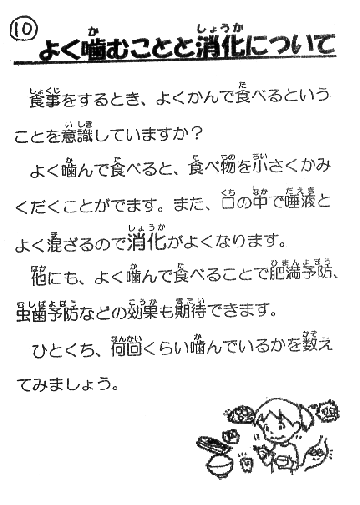 ⑩
よく噛むことと消化について
食事をするとき、よくかんで食べるという
ことを意識していますか？
よく噛んで食べると、食べ物を小さくかみ
くだくことがでます。また、口の中で唾液と
よく混ざるので消化がよくなります。
他にも、よく噛んで食べることで肥満予防、
虫歯予防などの効果も期待できます。
ひとくち、何回くらい噛んでいるかを数え
てみましょう。